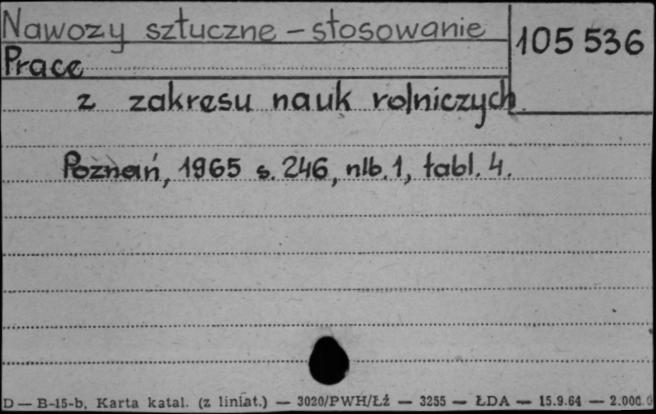 Nawozy sztuczne – stosowanie
105 536
Prace
z zakresu nauk rolniczych
Poznań, 1965 s. 246, nlb. 1, tabl. 4.
D — B-15-b, Karta katal. (z liniat.) — 3020/PWH/Łź — 3255 — ŁDA — 15.9.64 — 2.000.0